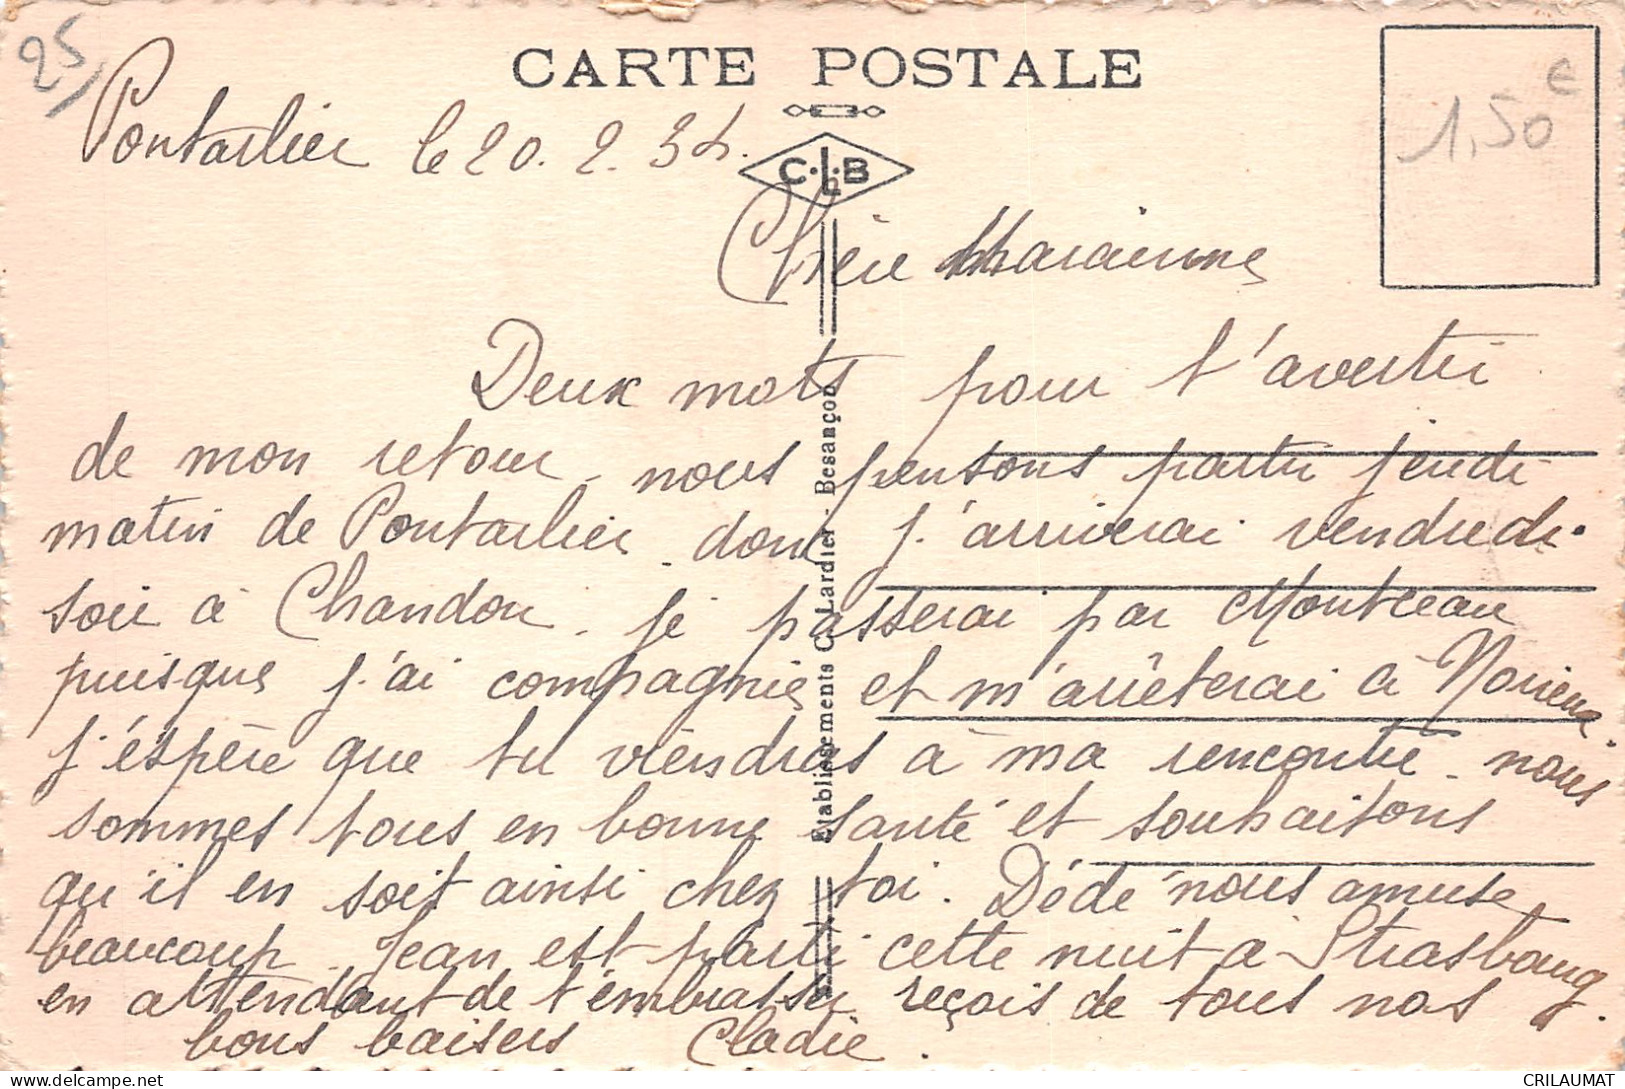 25
CARTE POSTALE
1,50€
Pontarlier le 20.2.34.
C.L.B
Chère Marainne
Deux mots pour t'avertir
de mon retour, nous pensons partir jeudi
matin de Pontarlier. donc j'arriverai vendredi
soir à Chandon. je passerai par Montceau
puisque j'ai compagnie et m'arrêterai à
j'éspère que tu viendras à ma rencontre. nous
sommes tous en bonne santé et souhaitons
qu'il en soit ainsi chez toi. Dédé nous amuse
beaucoup. Jean est parti cette nuit à Strasbourg
en attendant de t'embrasser reçois de tous nos
bons baisers Cladie.
Etablissements C. Lardier - Besançon
CRILAUMAT